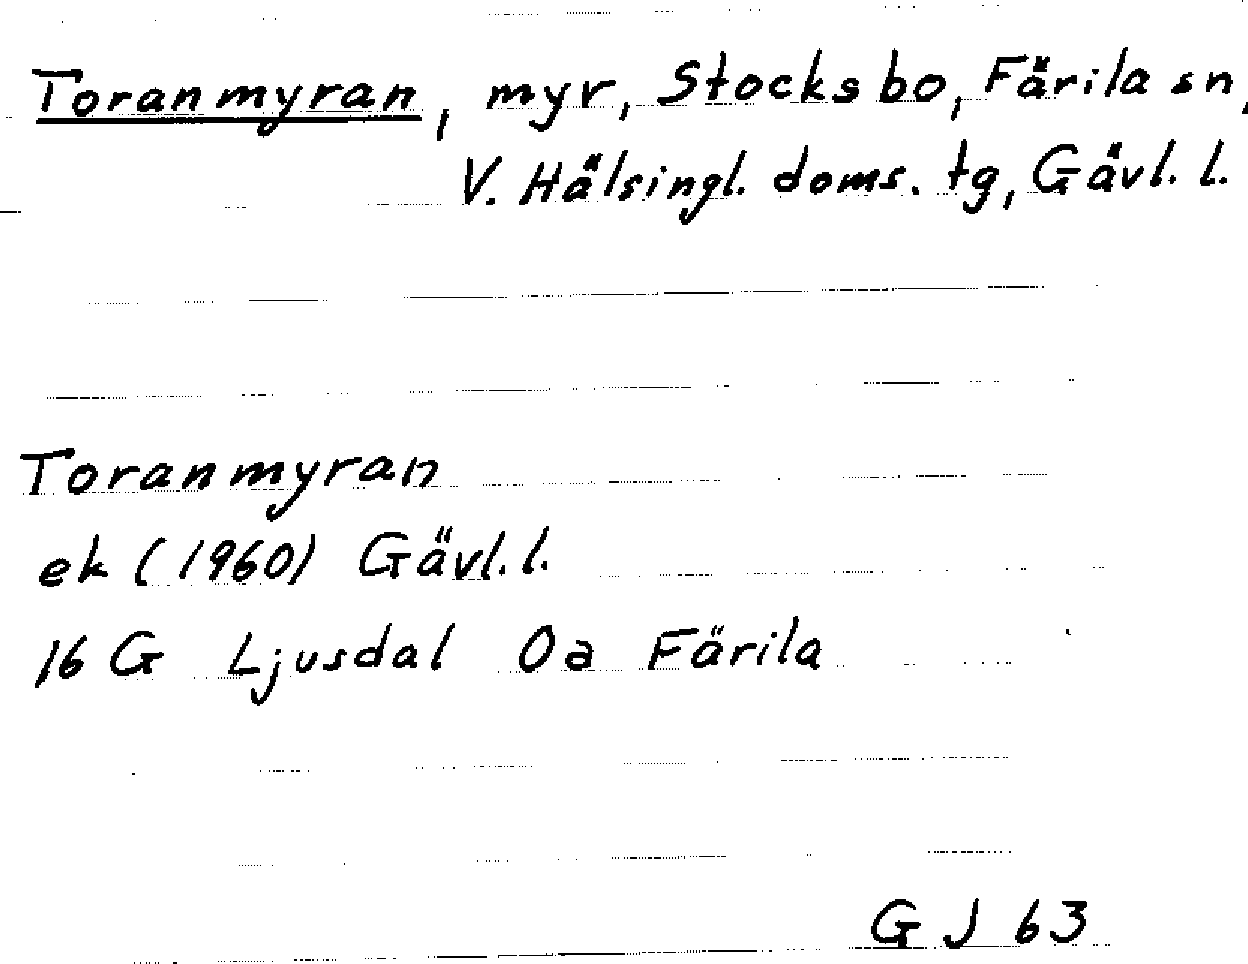 Toranmyran, myr, Stocksbo, Färila sn,
V. Hälsingl. doms. tg, Gävl. l.
Toranmyran
ek (1960) Gävl. l.
16 G Ljusdal 0a Färila
G J 63